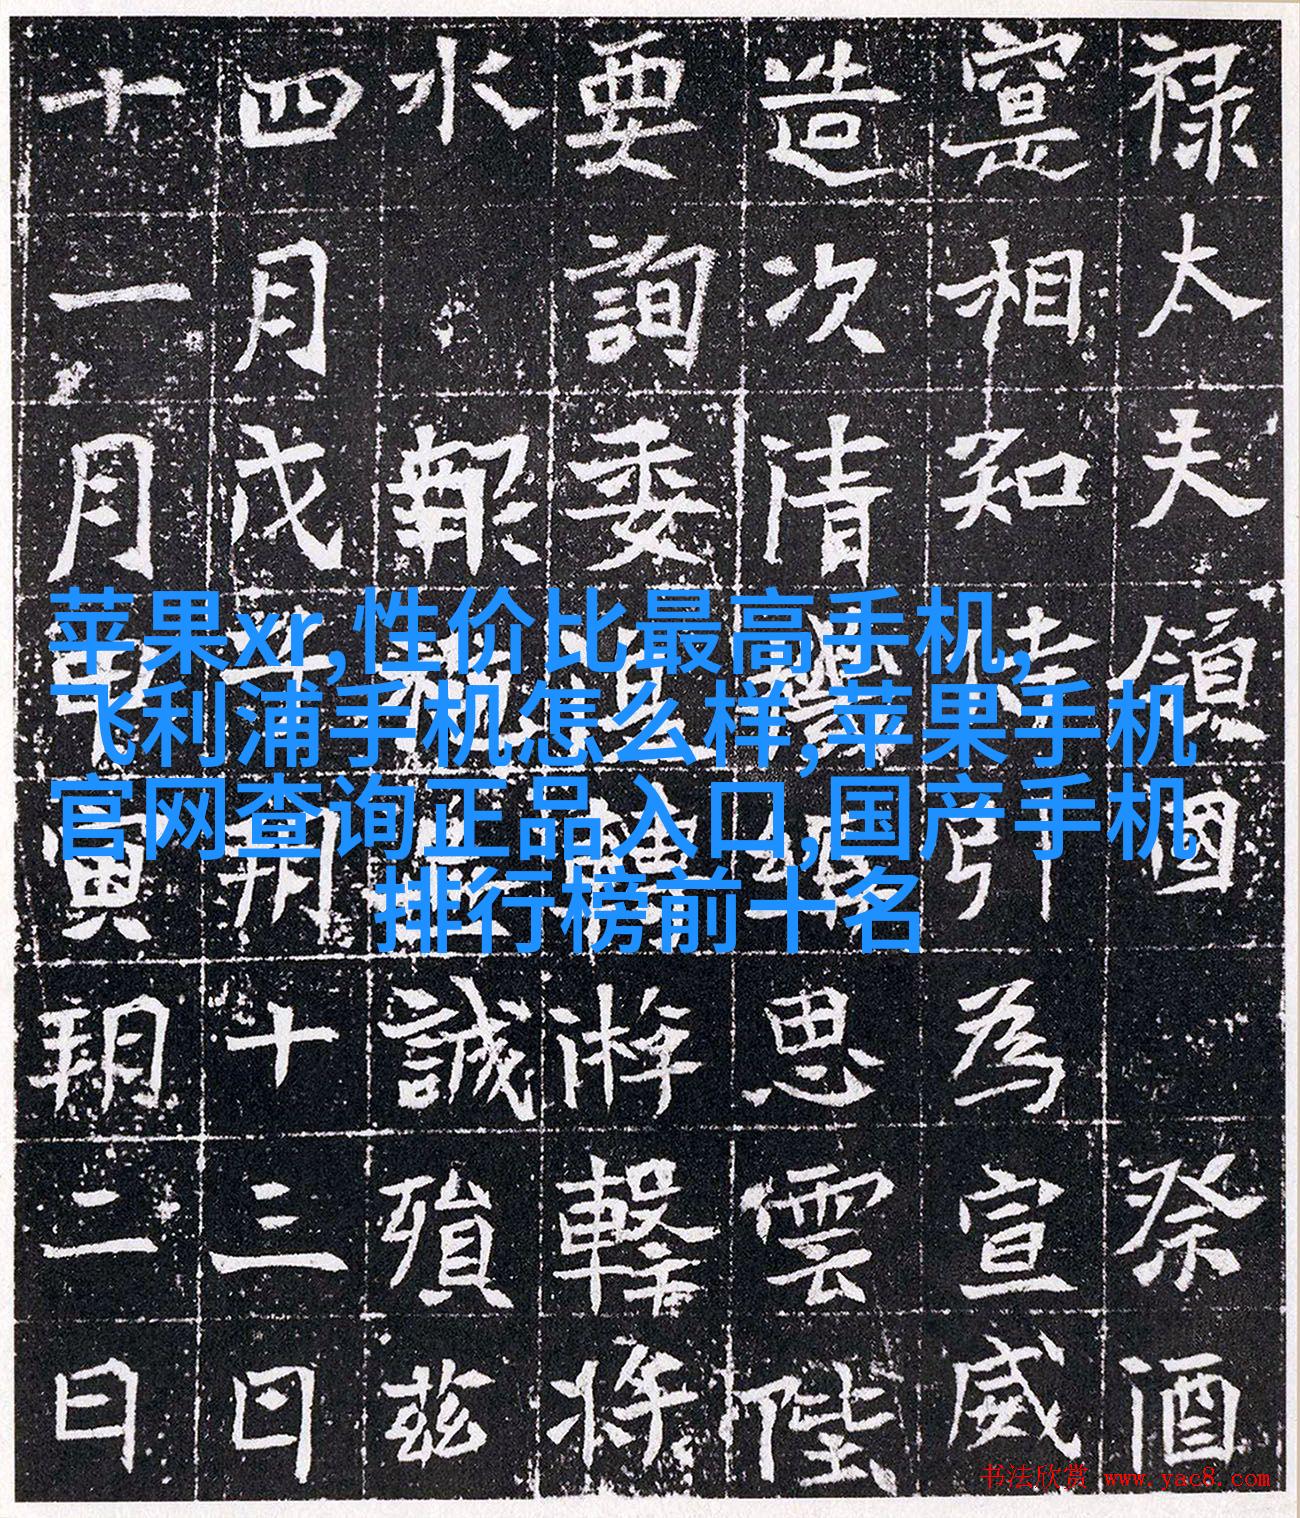 禄太夫領國祭酒
寔相知引為宣威
造次清思雲陛
要詢委游擊將
水報誠殞茲
四月戊子朔十三日
十一月寅朔二日
苹果xr,性价比最高手机,
飞利浦手机怎么样,苹果手机
官网查询正品入口,国产手机
排行榜前十名
书法欣赏 www.yac8.com